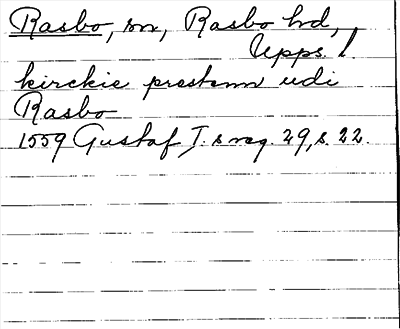 Rasbo, sn, Rasbo hd,
Upps. l.
kirckie prestenn udi
Rasbo
1559 Gustaf I:s reg. 29, s. 22.